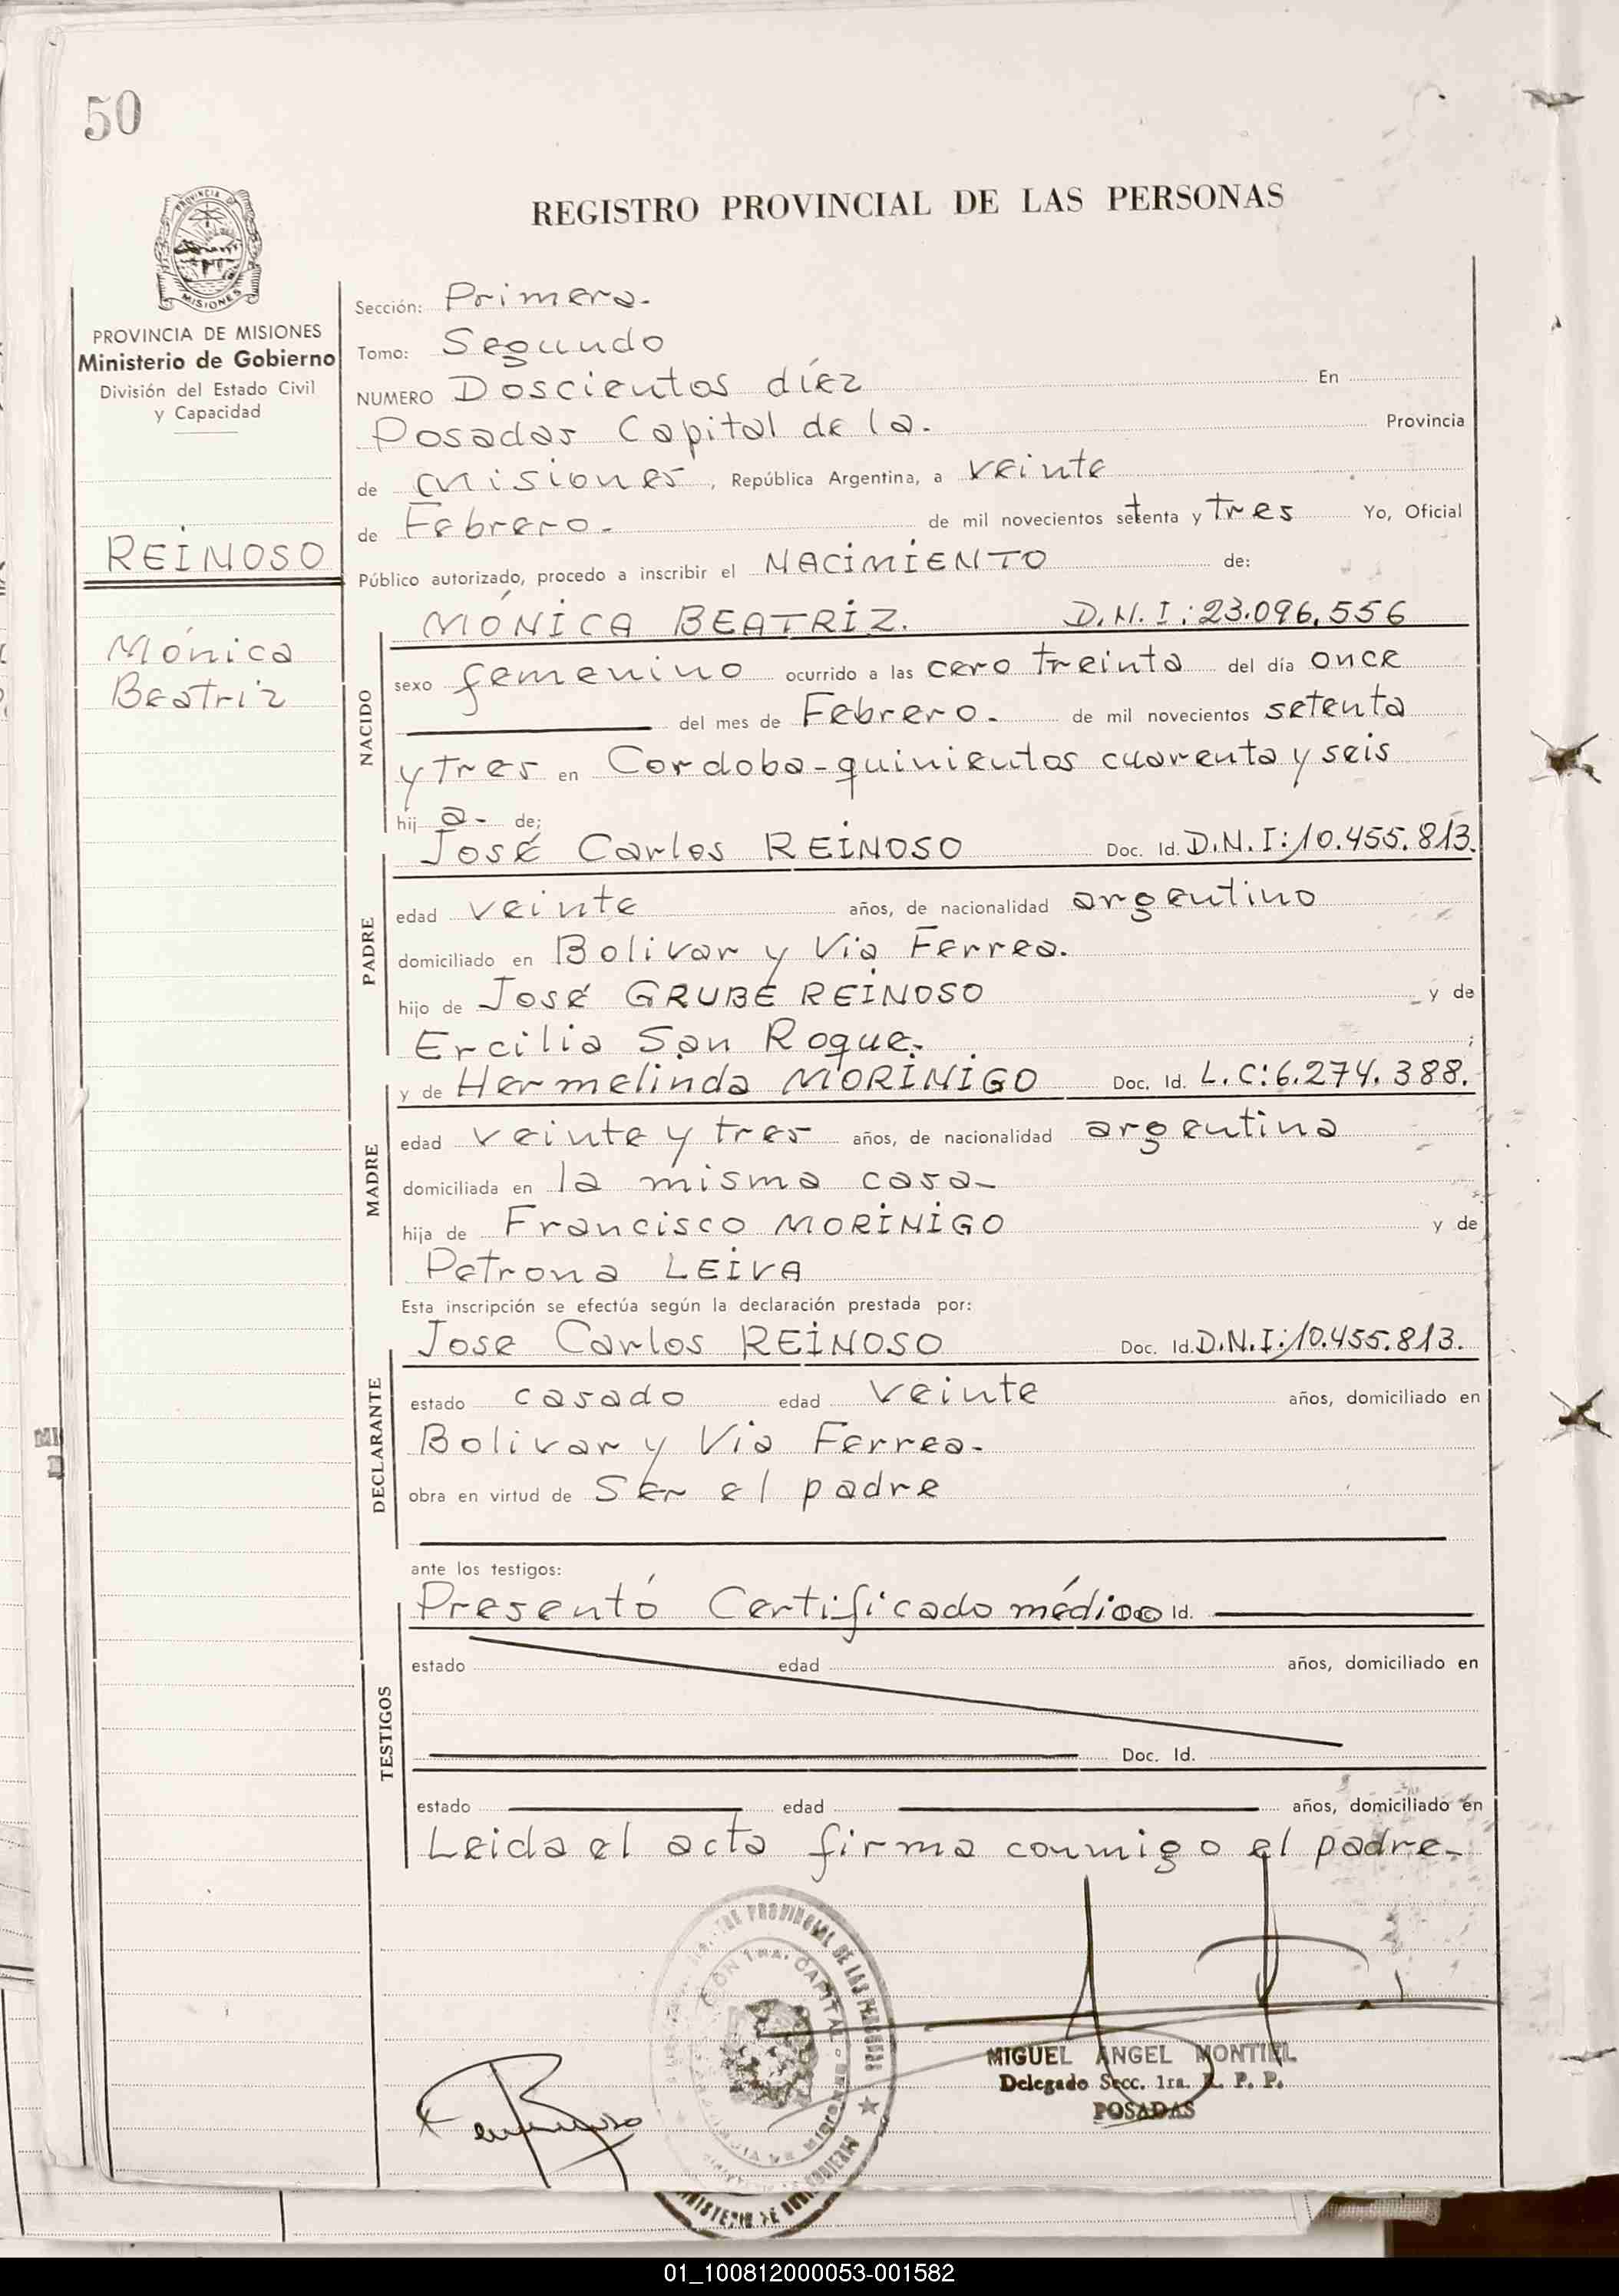 50
REGISTRO PROVINCIAL DE LAS PERSONAS
PROVINCIA DE
MISIONES
PROVINCIA DE MISIONES
Ministerio de Gobierno
División del Estado Civil
y Capacidad
REINOSO
Mónica
Beatriz
Sección: Primera-
Tomo: Segundo
NUMERO Doscientos díez En
Posadas Capital de la. Provincia
de Misiones, República Argentina, a veinte
de Febrero- de mil novecientos setenta y tres Yo, Oficial
Público autorizado, procedo a inscribir el NACIMIENTO de:
NACIDO
MÓNICA BEATRIZ. D.N.I:23.096.556
sexo femenino ocurrido a las cero treinta del día once
del mes de Febrero- de mil novecientos setenta
y tres en Cordoba-quinientos cuarenta y seis
hij a- de;
PADRE
José Carlos REINOSO Doc. Id. D.N.I:10.455.813.
edad veinte años, de nacionalidad argentino
domiciliado en Bolivar y Via Ferrea.
hijo de José GRUBE REINOSO y de
Ercilia San Roque- ;
MADRE
y de Hermelinda MORINIGO Doc. Id. L.C:6.274.388.
edad veinte y tres años, de nacionalidad argentina
domiciliada en la misma casa-
hija de Francisco MORINIGO y de
Petrona LEIVA
Esta inscripción se efectúa según la declaración prestada por:
DECLARANTE
Jose Carlos REINOSO Doc. Id. D.N.I:10.455.813.
estado casado edad veinte años, domiciliado en
Bolivar y Via Ferrea-
obra en virtud de Ser el padre
ante los testigos:
TESTIGOS
Presentó Certificado médico Doc. Id.
estado edad años, domiciliado en
Doc. Id.
estado edad años, domiciliado en
Leida el acta firma conmigo el padre-
PROVINCIAL DE LAS PERSONAS
1ra. CAPITAL
MINISTERIO DE GOBIERNO
MIGUEL ANGEL MONTIEL
Delegado Secc. 1ra. R. P. P.
POSADAS
01_100812000053-001582